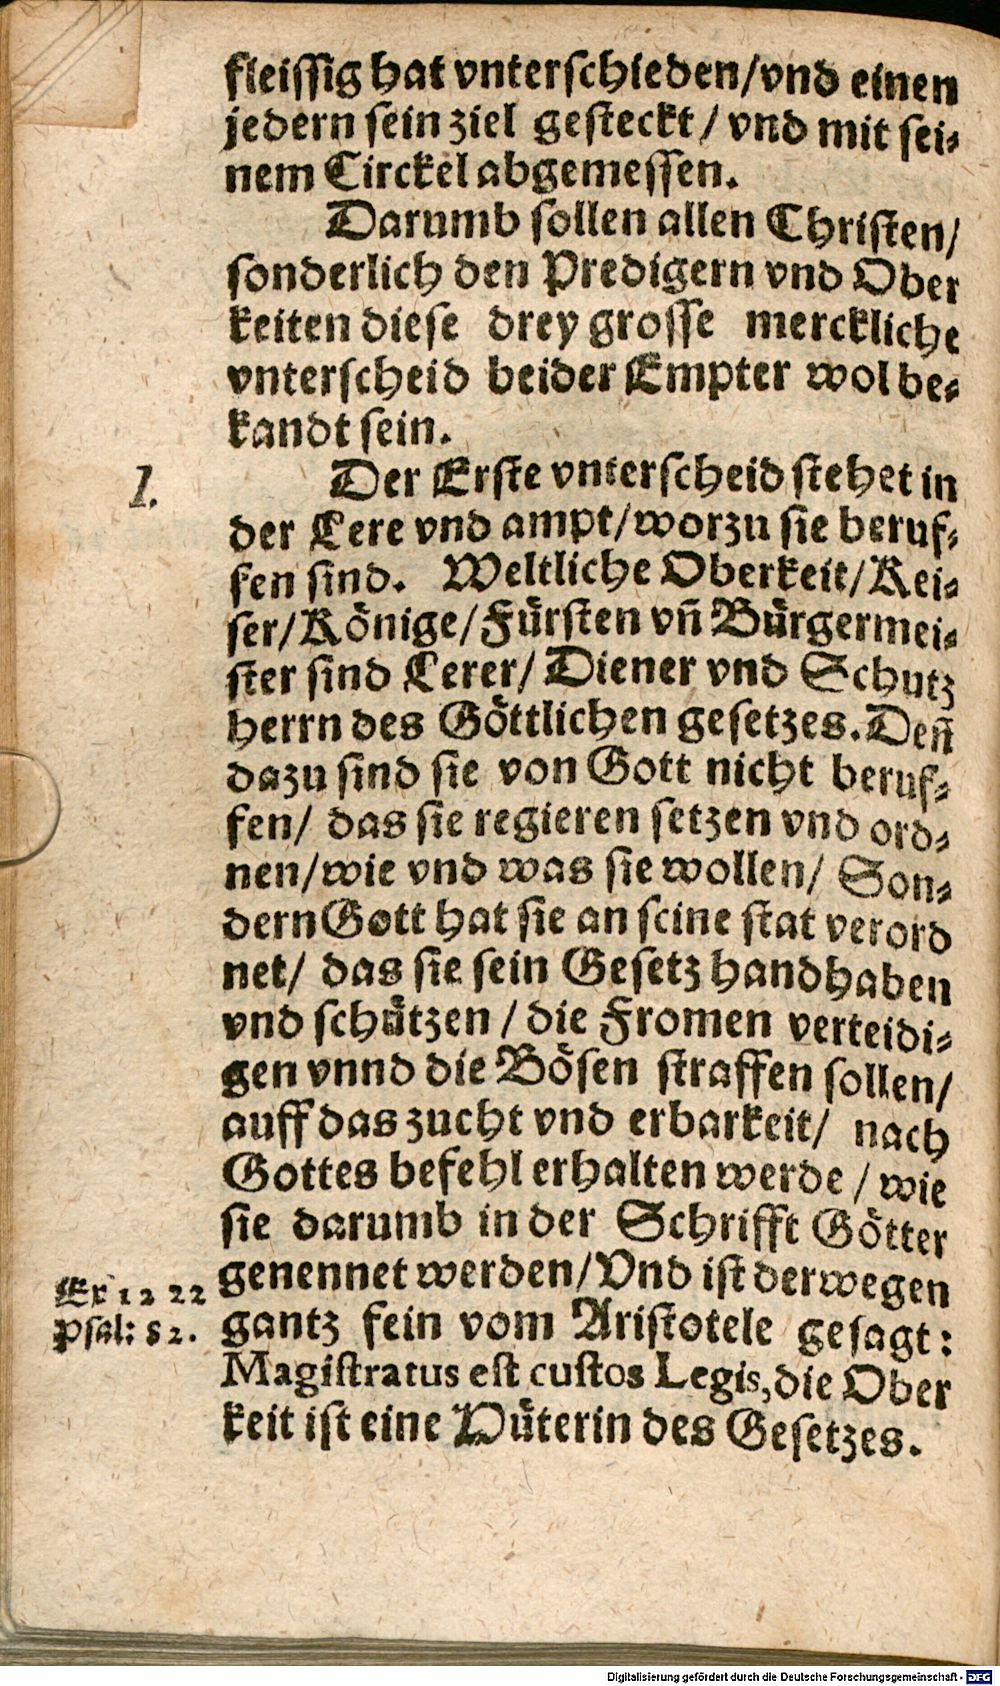 fleissig hat vnterschieden/vnd einen
jedern sein ziel gesteckt/ vnd mit sei-
nem Circkel abgemessen.
Darumb sollen allen Christen/
sonderlich den Predigern vnd Ober
keiten diese drey grosse merckliche
vnterscheid beider Empter wol be-
kandt sein.
1.
Der Erste vnterscheid stehet in
der Lere vnd ampt/worzu sie beruf-
fen sind. Weltliche Oberkeit/Kei-
ser/Könige/Fürsten vñ Bürgermei-
ster sind Lerer/ Diener vnd Schutz
herrn des Göttlichen gesetzes. Deñ
dazu sind sie von Gott nicht beruf-
fen/ das sie regieren setzen vnd ord-
nen/wie vnd was sie wollen/ Son-
dern Gott hat sie an seine stat verord
net/ das sie sein Gesetz handhaben
vnd schützen/ die Fromen verteidi-
gen vnnd die Bösen straffen sollen/
auff das zucht vnd erbarkeit/ nach
Gottes befehl erhalten werde/ wie
sie darumb in der Schrifft Götter
genennet werden/Vnd ist derwegen
Ex 12 22
Psal: 82.
gantz fein vom Aristotele gesagt:
Magistratus est custos Legis, die Ober
keit ist eine Hüterin des Gesetzes.
Digitalisierung gefördert durch die Deutsche Forschungsgemeinschaft - DFG